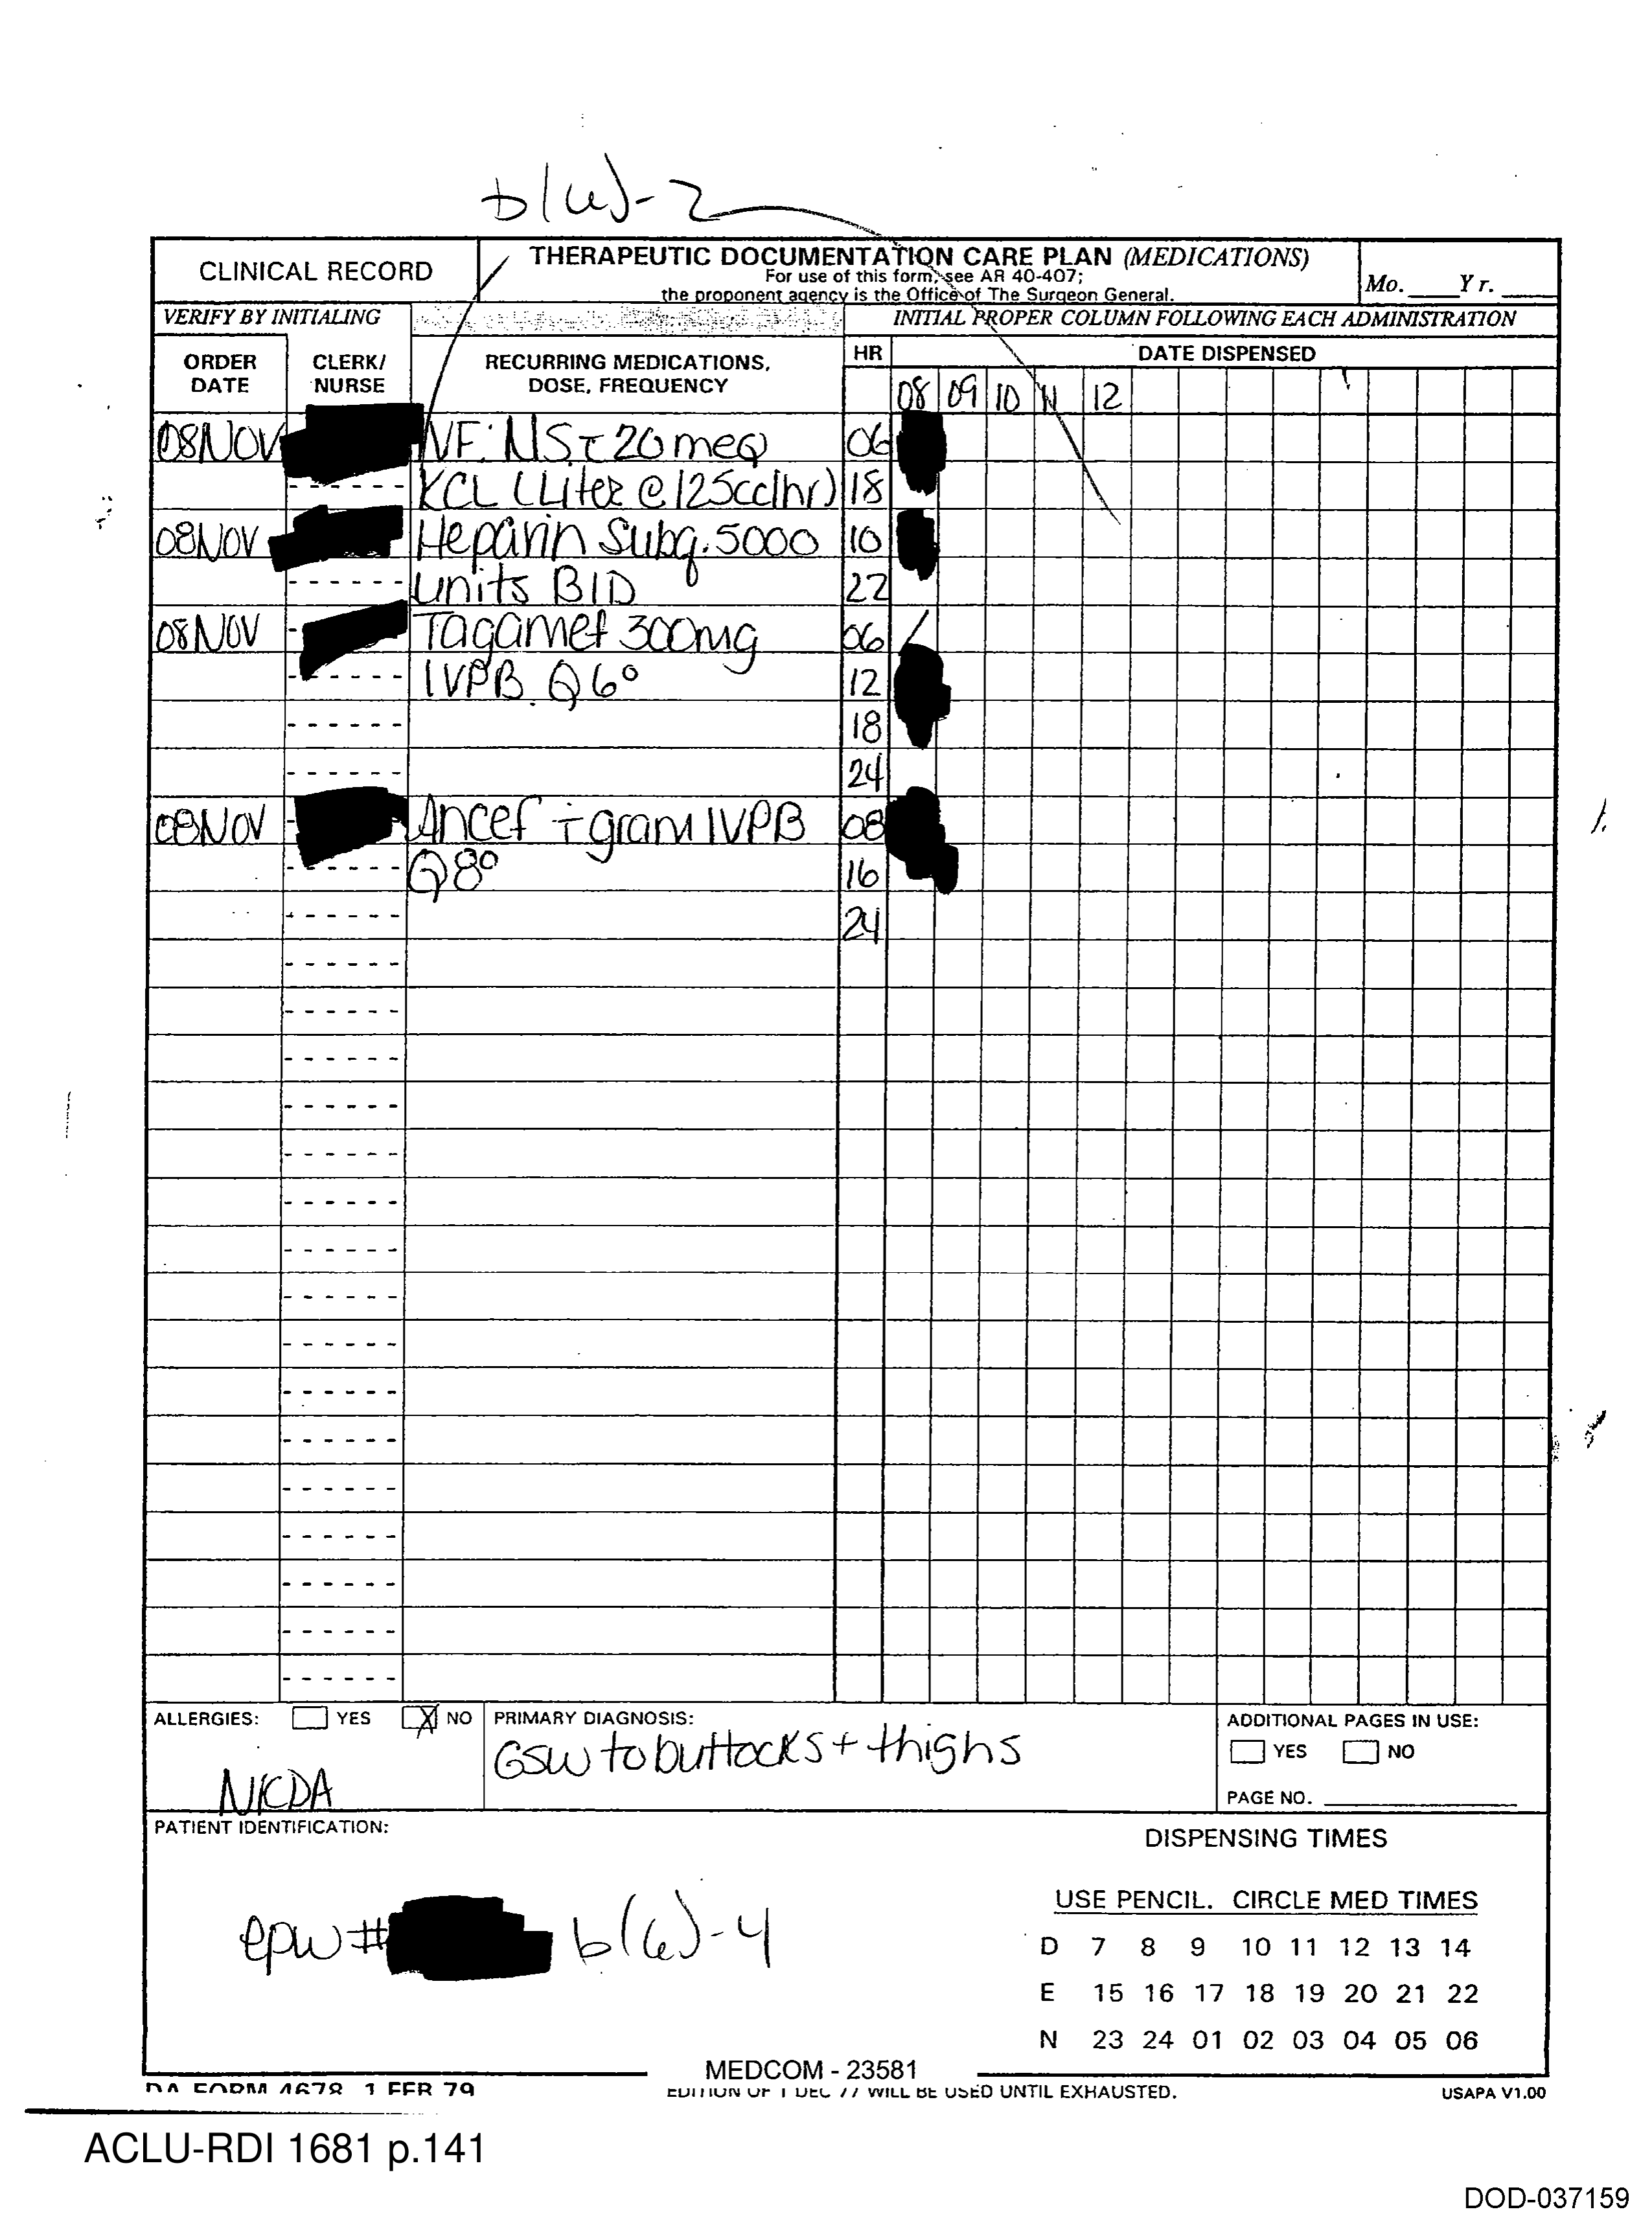 b(6)-2
CLINICAL RECORD
THERAPEUTIC DOCUMENTATION CARE PLAN (MEDICATIONS)
For use of this form, see AR 40-407;
the proponent agency is the Office of The Surgeon General.
Mo. ____ Yr. ____
VERIFY BY INITIALING
INITIAL PROPER COLUMN FOLLOWING EACH ADMINISTRATION
ORDER DATE
CLERK/ NURSE
RECURRING MEDICATIONS, DOSE, FREQUENCY
HR
DATE DISPENSED
08 09 10 11 12
08NOV VF: NS c 20 meq 06
KCL (Liter @ 125cc/hr) 18
08NOV Heparin Subq. 5000 10
units BID 22
08NOV Tagamet 300mg 06
IVPB Q6° 12
18
24
08NOV Ancef i gram IVPB 08
Q8° 16
24
ALLERGIES: YES X NO
NKDA
PRIMARY DIAGNOSIS:
GSW to buttocks + thighs
ADDITIONAL PAGES IN USE:
YES NO
PAGE NO. ____
PATIENT IDENTIFICATION:
epw# b(6)-4
DISPENSING TIMES
USE PENCIL. CIRCLE MED TIMES
D 7 8 9 10 11 12 13 14
E 15 16 17 18 19 20 21 22
N 23 24 01 02 03 04 05 06
MEDCOM - 23581
DA FORM 4678, 1 FEB 79
EDITION OF 1 DEC 77 WILL BE USED UNTIL EXHAUSTED.
USAPA V1.00
ACLU-RDI 1681 p.141
DOD-037159